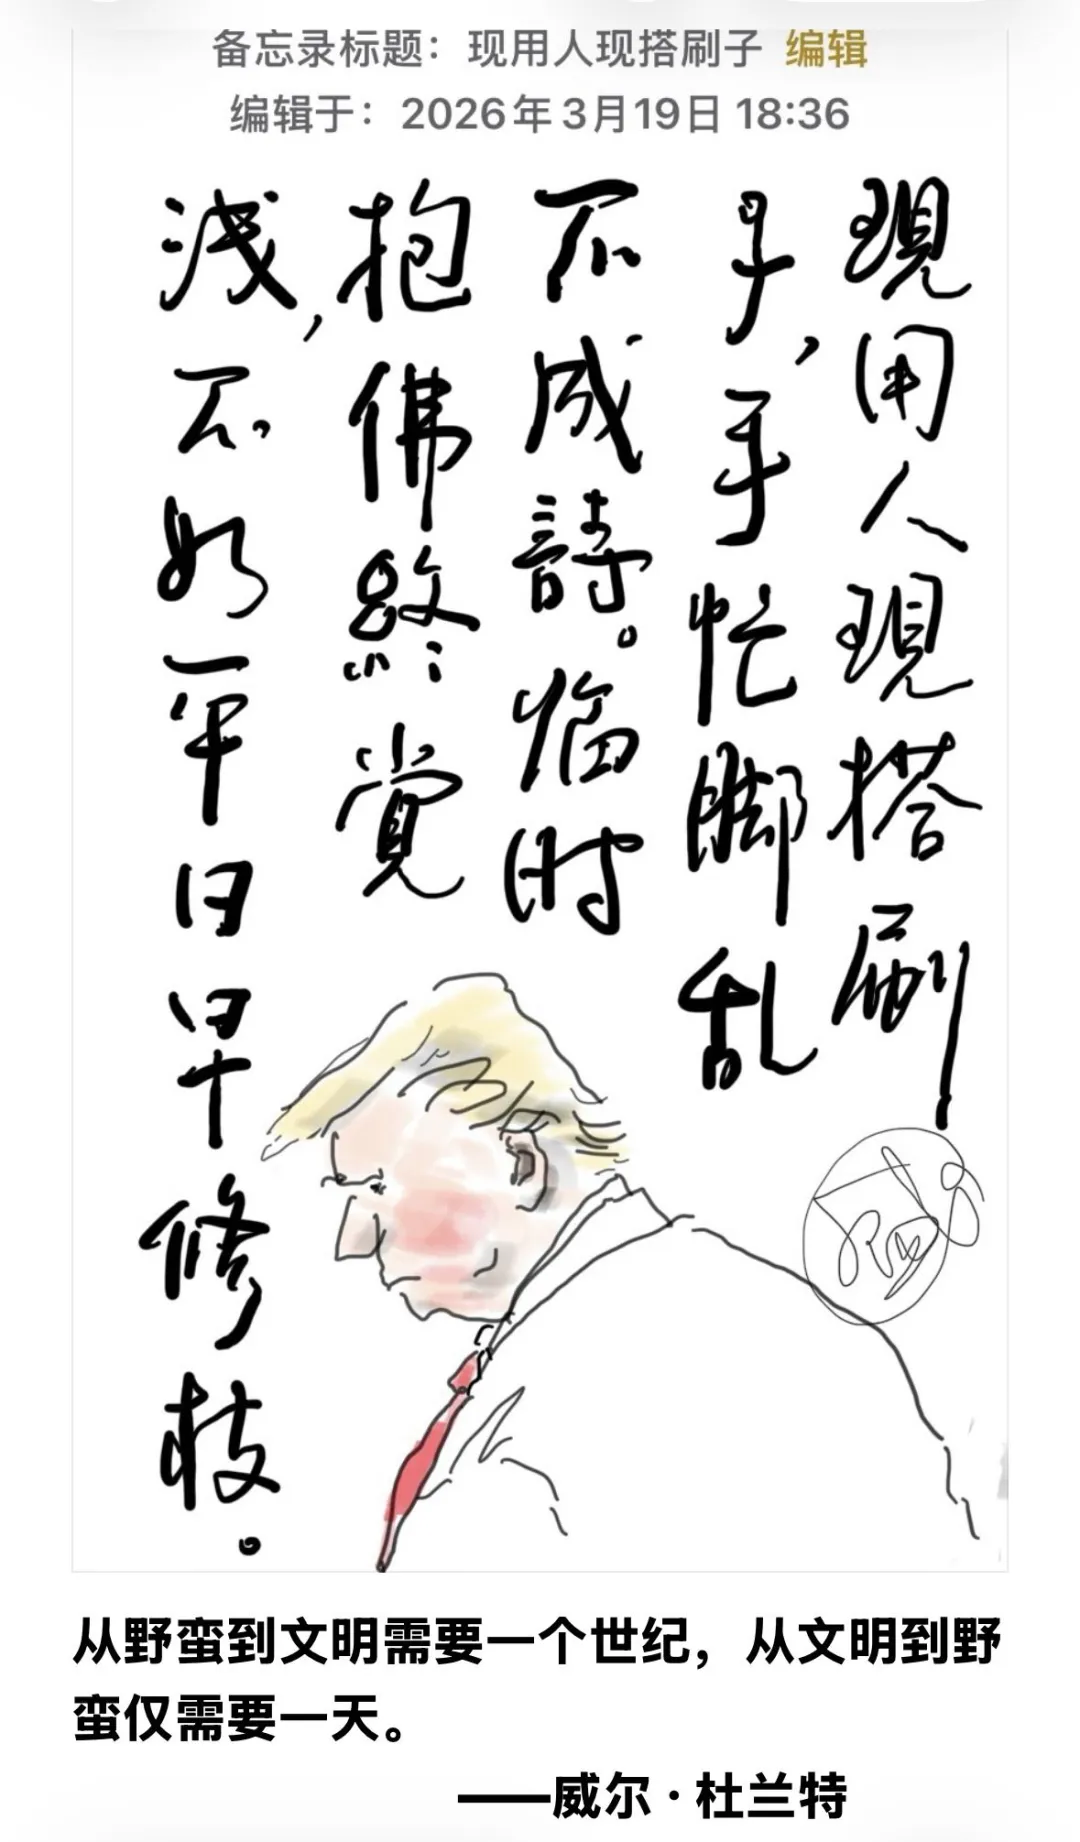 备忘录标题：现用人现搭刷子 编辑
编辑于：2026年3月19日 18:36
現用人現搭刷
子，手忙脚乱
不成詩。临时
抱佛終觉
浅，不如平日早修枝。
从野蛮到文明需要一个世纪，从文明到野
蛮仅需要一天。
——威尔·杜兰特